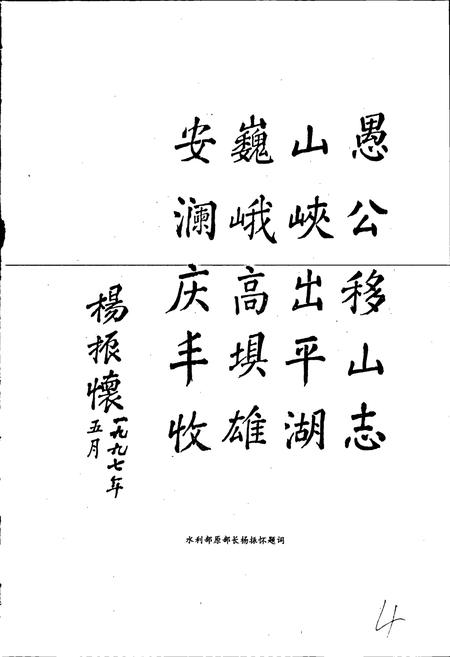 愚公移山志
山峽出平湖
巍峨高坝雄
安澜庆丰收
楊振懷
一九九七年
五月
水利部原部长杨振怀题词
4